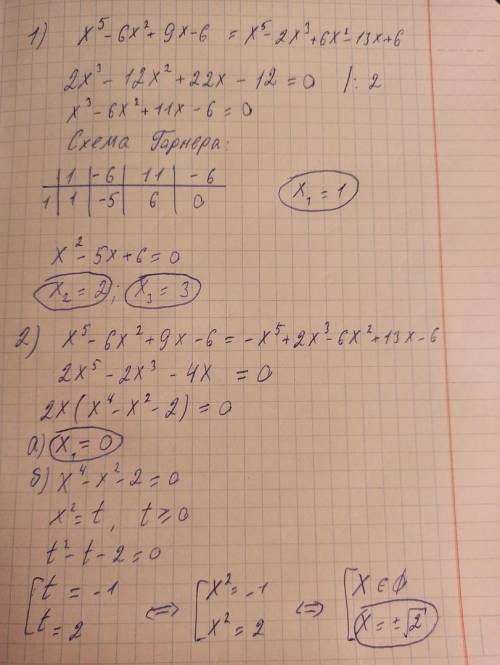 1) x⁵-6x²+9x-6 = x⁵-2x³+6x²-13x+6
2x³-12x²+22x-12=0 /:2
x³-6x²+11x-6=0
Схема Горнера:
| 1 | -6 | 11 | -6
1 | 1 | -5 | 6 | 0
x₁=1
x²-5x+6=0
x₂=2; x₃=3
2) x⁵-6x²+9x-6=-x⁵+2x³-6x²+13x-6
2x⁵-2x³-4x =0
2x(x⁴-x²-2)=0
а) x₁=0
б) x⁴-x²-2=0
x²=t, t≥0
t²-t-2=0
[t=-1 [x²=-1 [x∈∅
t=2 <=> x²=2 <=> x=±√2